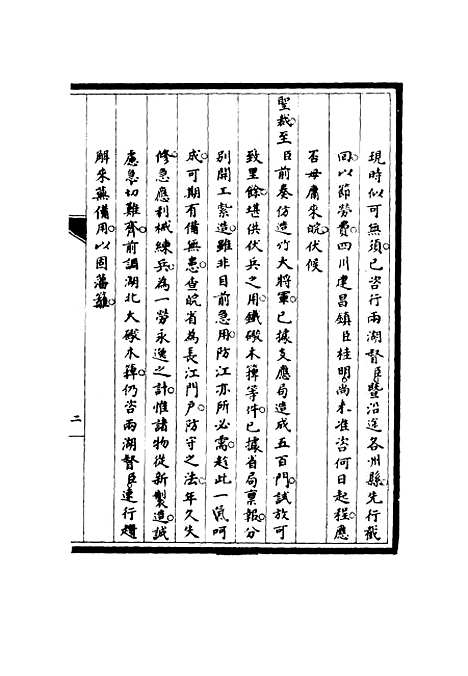 現時似可無須已咨行兩湖督臣暨沿途各州縣先行截
回以節勞費四川建昌鎮臣桂明尚未准咨何日起程應
否毋庸來皖伏候
聖裁至臣前奏仿造竹大將軍已據支應局造成五百門試放可
致里餘堪供伏兵之用鐵礮木簰等件已據省局稟報分
別開工紮造雖非目前急用防江亦所必需趁此一氣呵
成可期有備無患查皖省為長江門戶防守之法年久失
修急應利械練兵為一勞永逸之計惟諸物從新製造誠
慮急切難齊前調湖北大礮木簰仍咨兩湖督臣速行趲
解來蕪備用以固藩籬
二